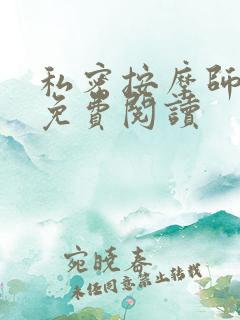 私密按摩師
免費閱讀
宛曉春
未任同意禁止转载